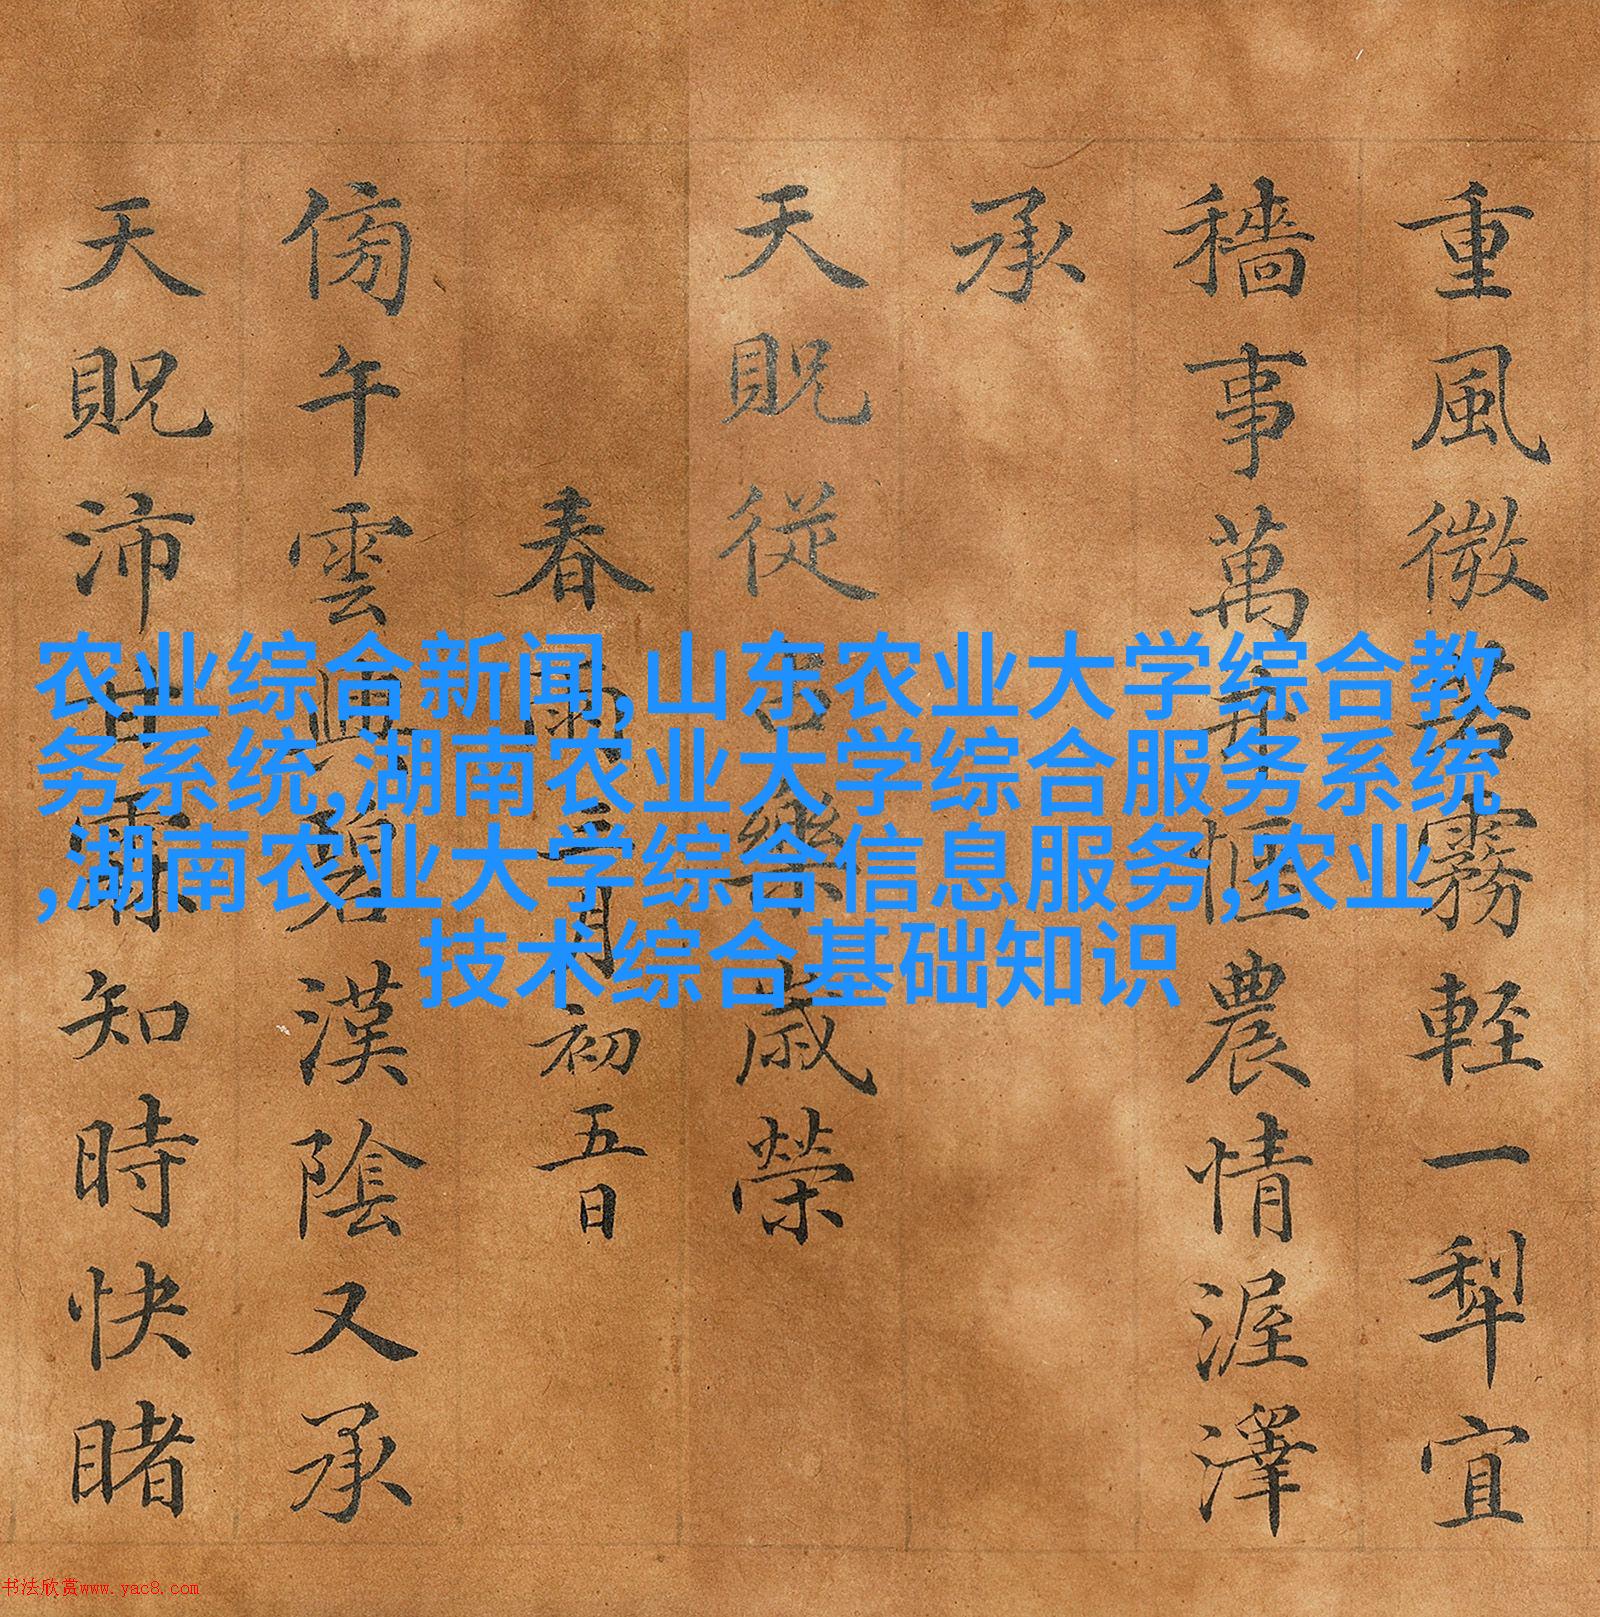 重風微霧輕一犁宜
穡事萬愜農情渥澤
承
天貺從占樂歲榮
春雨月初五日
傍午雲興碧漢陰又承
天貺沛甘霖知時快睹
农业综合新闻,山东农业大学综合教
务系统,湖南农业大学综合服务系统
,湖南农业大学综合信息服务,农业
技术综合基础知识
书法欣赏www.yac8.com